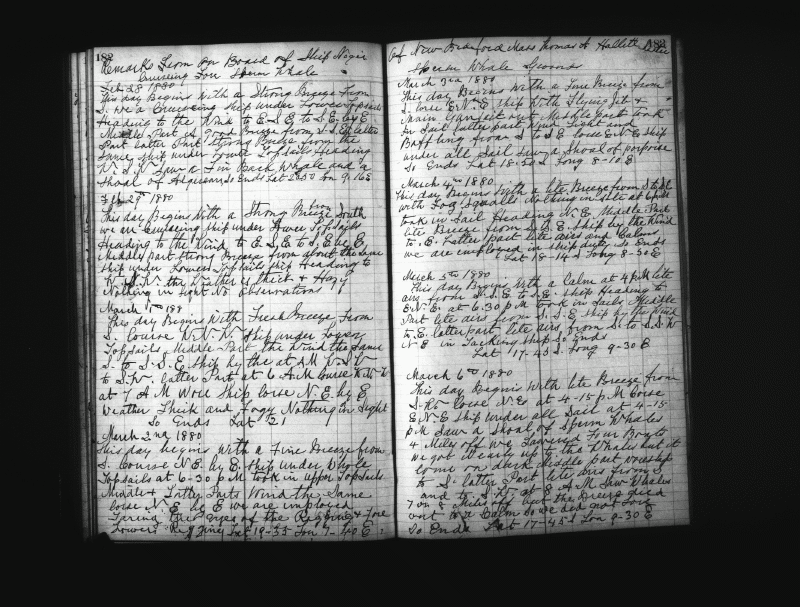 182
Remarks from on Board of Ship Niger
Cruising for Sperm Whale
Feb 28 1880
This day Begins with a Strong Breeze from
S. we a Cruiseing Ship under Lower Topsails
Heading to the Wind to E.S.E. to S.E. by E
Middle Part a good Breeze from S.S.E. latter
Part Strong Breeze from the
Same Ship under Lower Topsails Heading
Saw a Fin Back Whale and a
Shoal of So Ends Lat
Feb 29th 1880
This day Begins With a Strong Breeze from South
we are Cruiseing Ship under Lower Topsails
Heading to the Wind to E.S.E. to S.E. by E.
Middle part Strong Breeze from about the Same
Ship under Lower Topsails Ship Heading to
W.S.W. the Weather is thick & Hazy
Nothing in Sight No observations
March 1st 188
This day Begins With Fresh Breeze From
S. Course N.N.W. Ship under Lower
Topsails Middle Part the Wind the Same
S. to S.S.E. Ship by the at AM W.S.W
to S.W. latter Part at 6 A.M Course
at 7 A M Wore Ship Corse N.E. by E
Weather Thick and Fogy Nothing in Sight
So Ends Lat 21
March 2nd 1880
This day begins with a Fine Breeze from
S. Course N.E. by E. Ship under Whole
Topsails at 6-30 P.M took in upper Topsails
Middle & Latter Parts Wind the Same
Corse N.E. by E we are imployed
Taring the Eyes of the Rigging & Fore
Lowers Rigging Lat 19-35 Lon 7-40 E
of New Bedford Mass Thomas A Hallett
Sperm Whale Grounds
March 3rd 1880
This day Begins With a Fine Breeze from
S. Corse E.N.E Ship With Flying Jib &
Main Gansell out Middle part took
In Sail latter part Wind light and
Baffling from S. to S.E. Corse E.N.E Ship
under all Sail Saw a Shoal of porpoise
So Ends Lat 18-50 S Long 8-10 E
March 4th 1880
This day Begins With a lite Breeze from
with Fog Squalls Nothing in Site at 6 P.M
took in Sail Heading N.E. Middle Part
lite Breeze from S.S.E. Ship by the Wind
to E. Latter part lite airs and Calms
we are employed in Ship duty So Ends
Lat 18-14 S Long 8-50 E
March 5th 1880
This day Begins With a Calm at 4 P.M lite
airs from S.S.E to S.E. Ship Heading to
E.N.E. at 6.30 P.M took in Sails Middle
Part lite airs from S.S.E. Ship by the Wind
to E. latter part lite airs from S. to S.S.W
in So Ends
Lat 17-45 S Long 9-30 E
March 6th 1880
This day Begins With lite Breeze from
Corse N.E. at 4-15 P.M Corse
E.N.E Ship under all Sail at 4-15
P.M Saw a Shoal of Sperm Whales
4 Miles off We Lowered Four Boats
we got nearly up to the Whale but it
come on dark Middle part
to S. latter Part lite airs from S
and to S.W. at 8 A M Saw Whales
7 or 8 Miles off but the Breeze died
out to a Calm So we did not Lore
So Ends Lat 17-45 S Lon 9-30 E